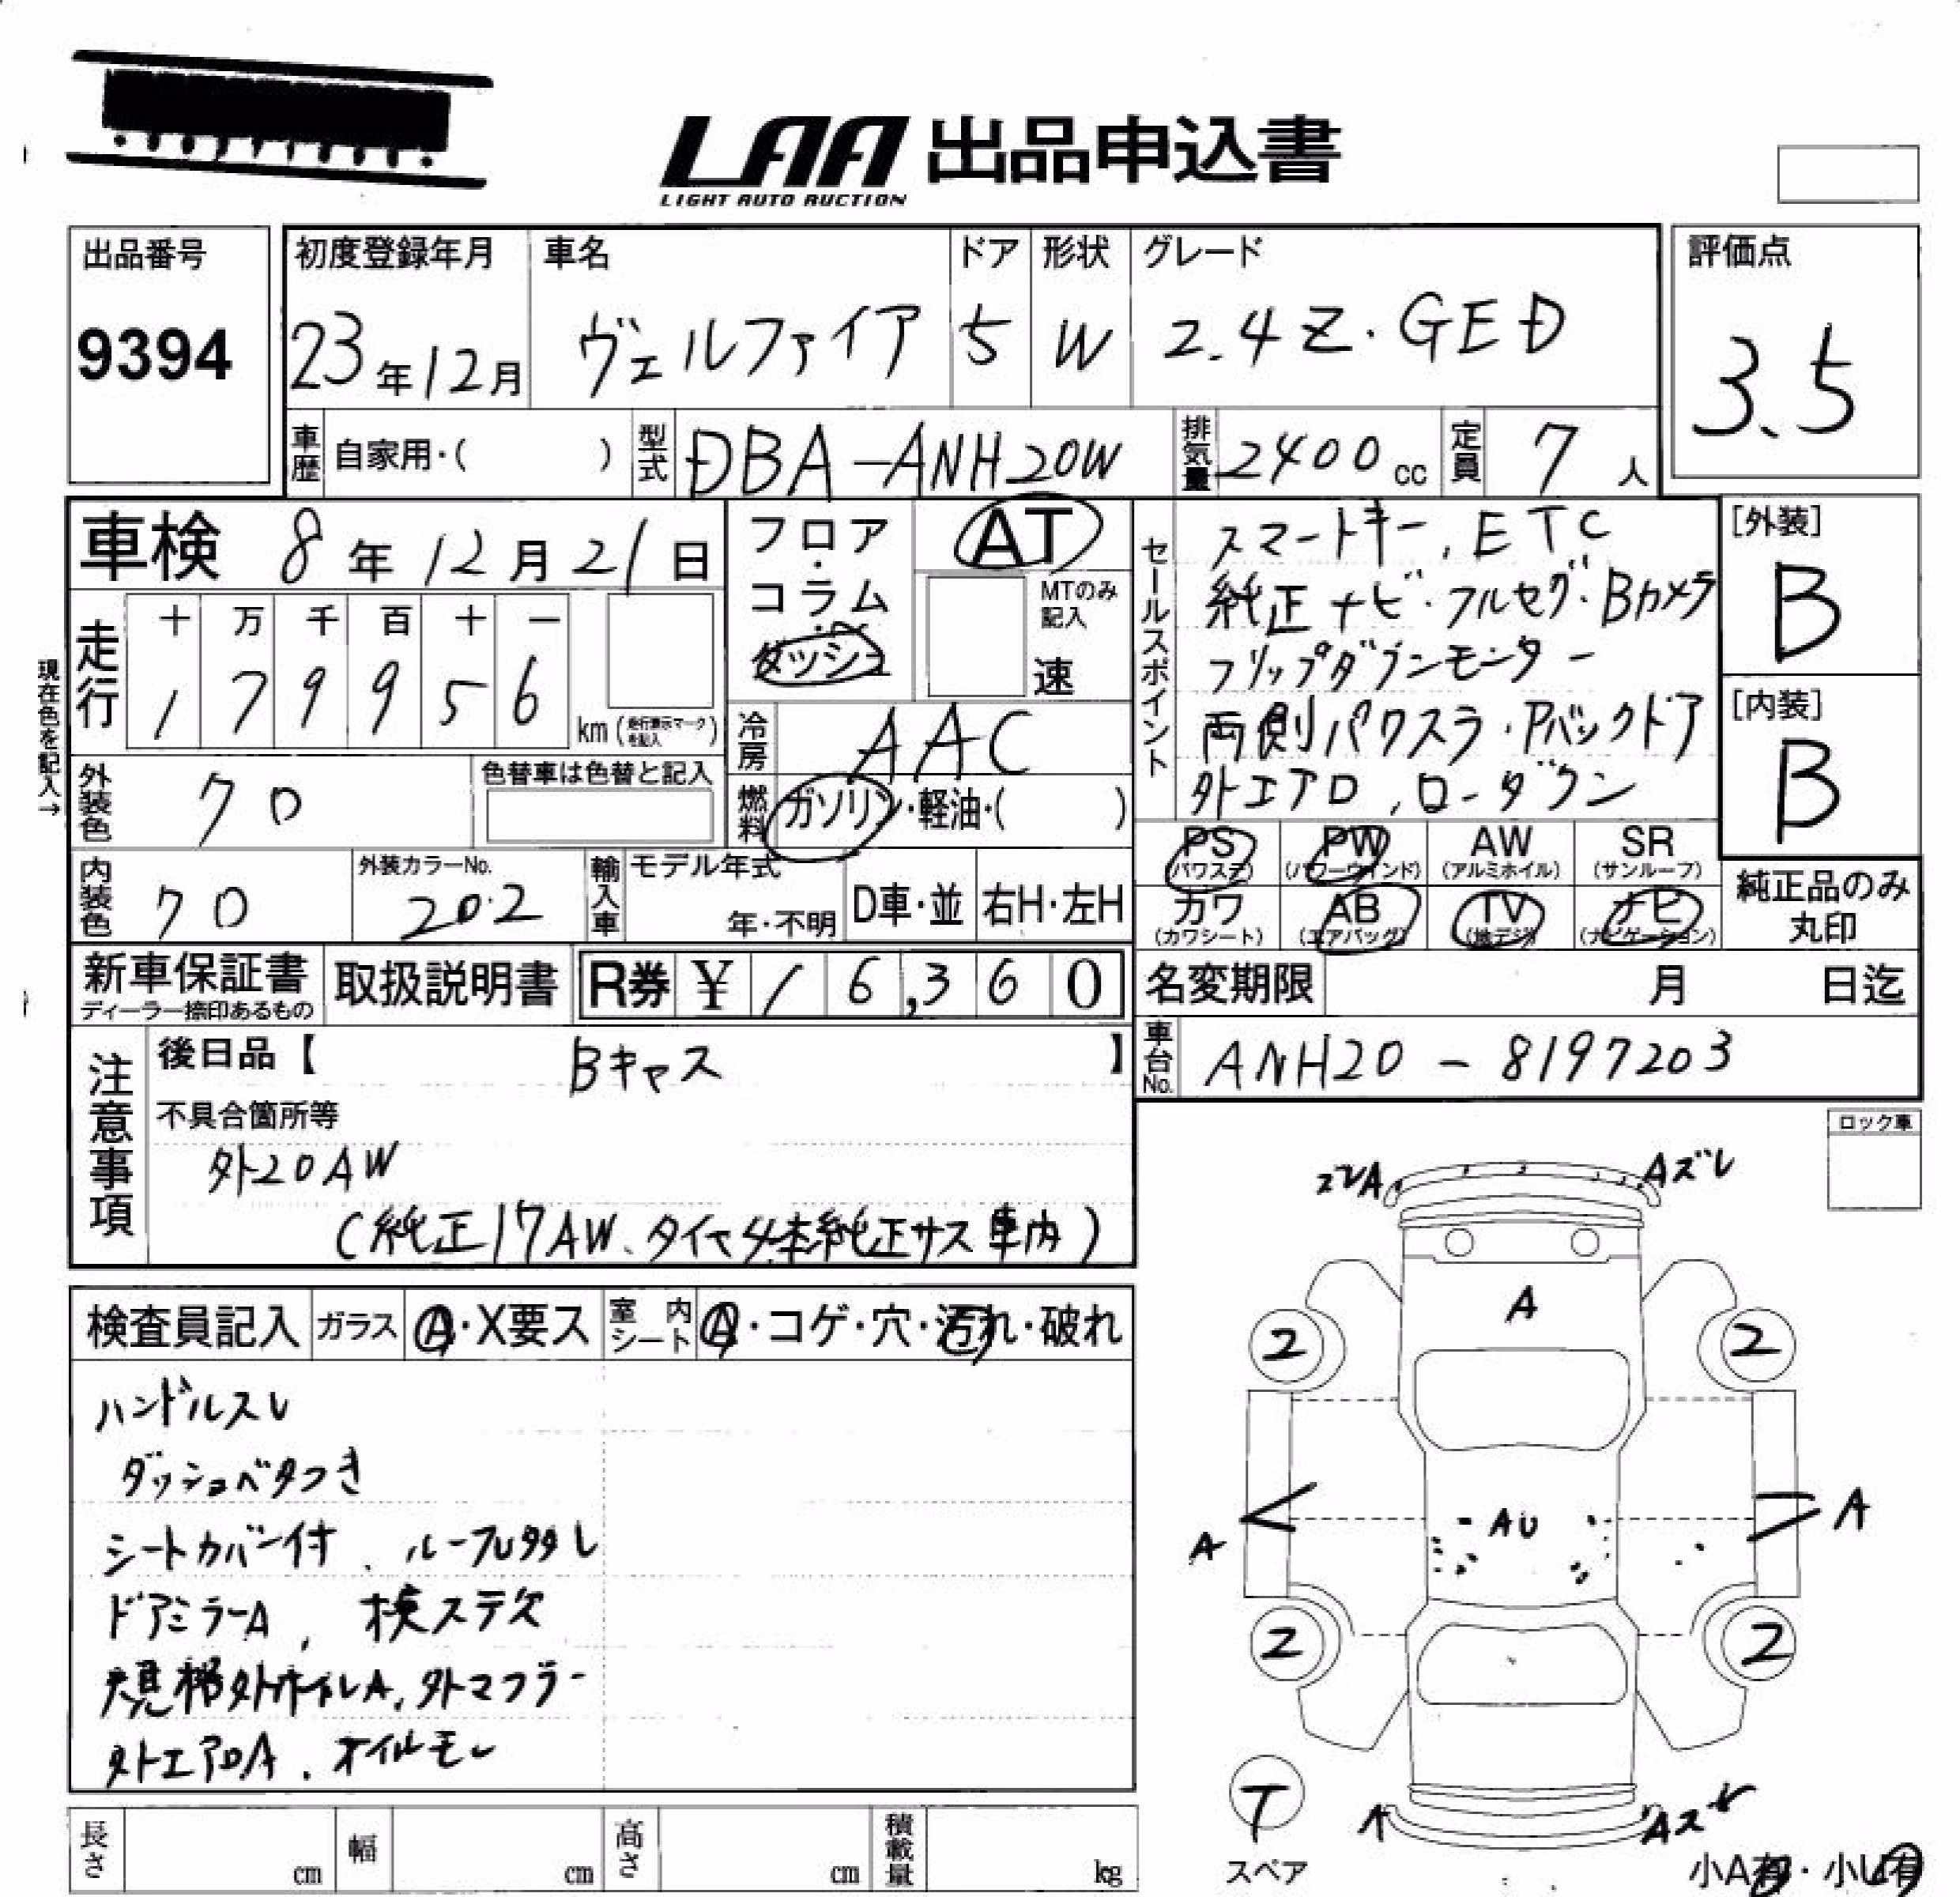 LAA 出品申込書
LIGHT AUTO AUCTION
出品番号
9394
初度登録年月 車名 ドア 形状 グレード
23年12月 ヴェルファイア 5 W 2.4Z・GED
評価点
3.5
車歴 自家用・( ) 型式 DBA-ANH20W 排気量 2400cc 定員 7人
車検 8年12月21日
走行 十 万 千 百 十 一
1 7 9 9 5 6 km (走行表示マークを記入)
現在色を記入→
外装色 クロ 色替車は色替と記入
内装色 クロ 外装カラーNo. 202
フロア・コラム・ダッシュ
AT
MTのみ記入
速
冷房 AAC
燃料 ガソリン・軽油・( )
輸入車 モデル年式 年・不明 D車・並 右H・左H
セールスポイント
スマートキー、ETC
純正ナビ・フルセグ・Bカメラ
フリップダウンモニター
両側パワスラ・Pバックドア
外エアロ、ローダウン
[外装]
B
[内装]
B
PS PW AW SR
(パワステ) (パワーウインド) (アルミホイル) (サンルーフ)
カワ AB TV ナビ
(カワシート) (エアバッグ) (地デジ) (ナビゲーション)
純正品のみ
丸印
新車保証書 取扱説明書 R券 ¥ 16,360
ディーラー捺印あるもの
名変期限 月 日迄
車台No. ANH20-8197203
注意事項
後日品【 Bキャス 】
不具合箇所等
外20AW
(純正17AW、タイヤ4本純正サス車内)
ロック車
検査員記入 ガラス A・X要ス 室内シート A・コゲ・穴・汚れ・破れ
ハンドルスレ
ダッシュベタつき
シートカバー付、ルーフUタタレ
ドアミラーA、検ステ欠
規格外ホイルA、外マフラー
外エアロA、オイルモレ
ズレA Aズレ
A
2 2
A AU A
2 2
T
スペア
A Aズレ
小A有・小U有
長さ cm 幅 cm 高さ cm 積載量 kg